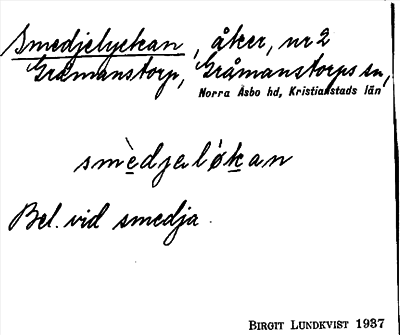 Smedjelyckan, åker, nr 2
Gråmanstorp, Gråmanstorps sn,
Norra Åsbo hd, Kristianstads län
smèdjeløkan
Bel. vid smedja.
BIRGIT LUNDKVIST 1937